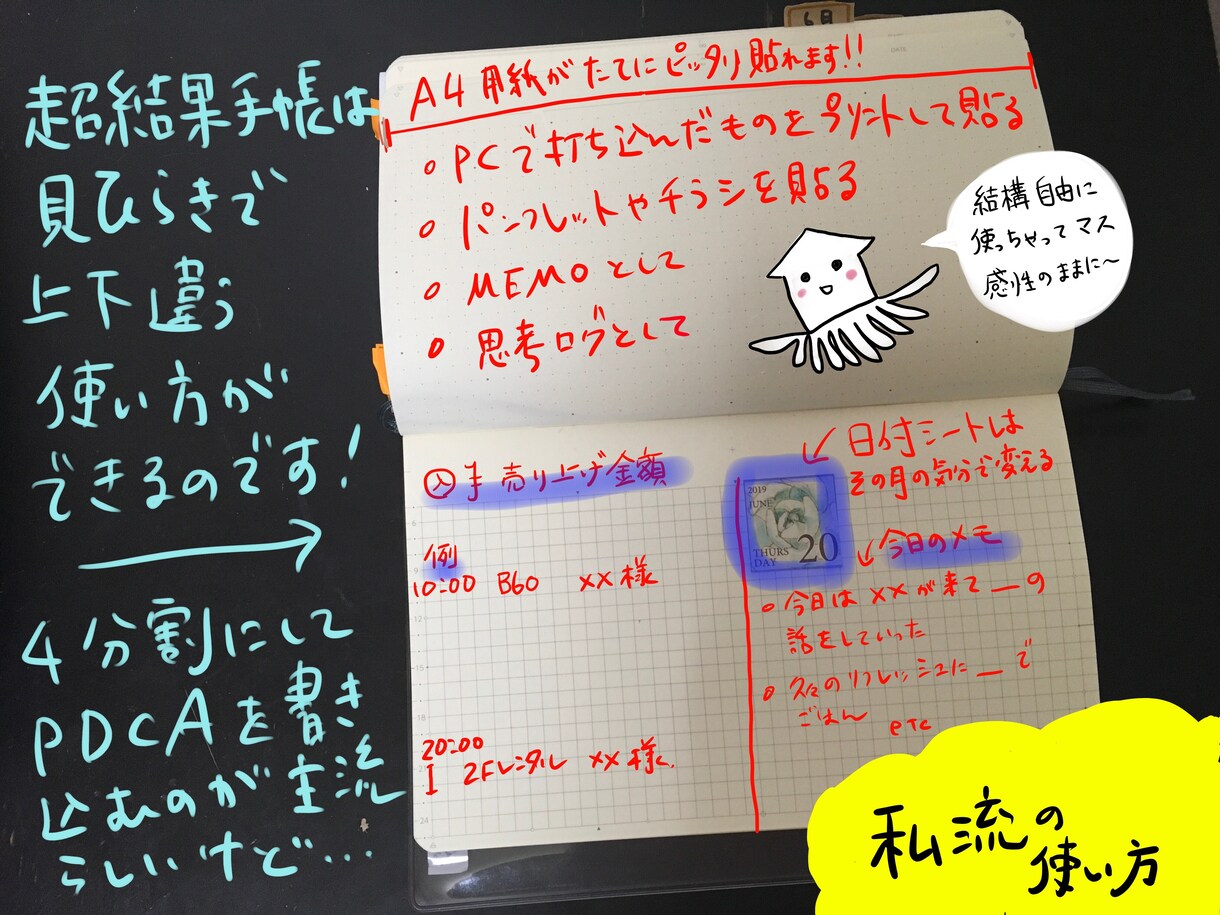 超結果手帳は
見ひらきで
上下違う
使い方が
できるのです!
4分割にして
PDCAを書き
込むのが主流
らしいけど…
6月
A4用紙がたてにピッタリ貼れます!!
。PCで打ち込んだものをプリントして貼る
。パンフレットやチラシを貼る
。MEMOとして
。思考ログとして
結構自由に
使っちゃってマス
感性のままに〜
売り上げ金額
例
10:00 B60 ××様
20:00
I 2Fレンタル ××様
日付シートは
その月の気分で変える
2019
JUNE
THURS
DAY
20
今日のメモ
。今日は××が来て__の
話をしていった
。久々のリフレッシュに__で
ごはん
etc
私流の
使い方